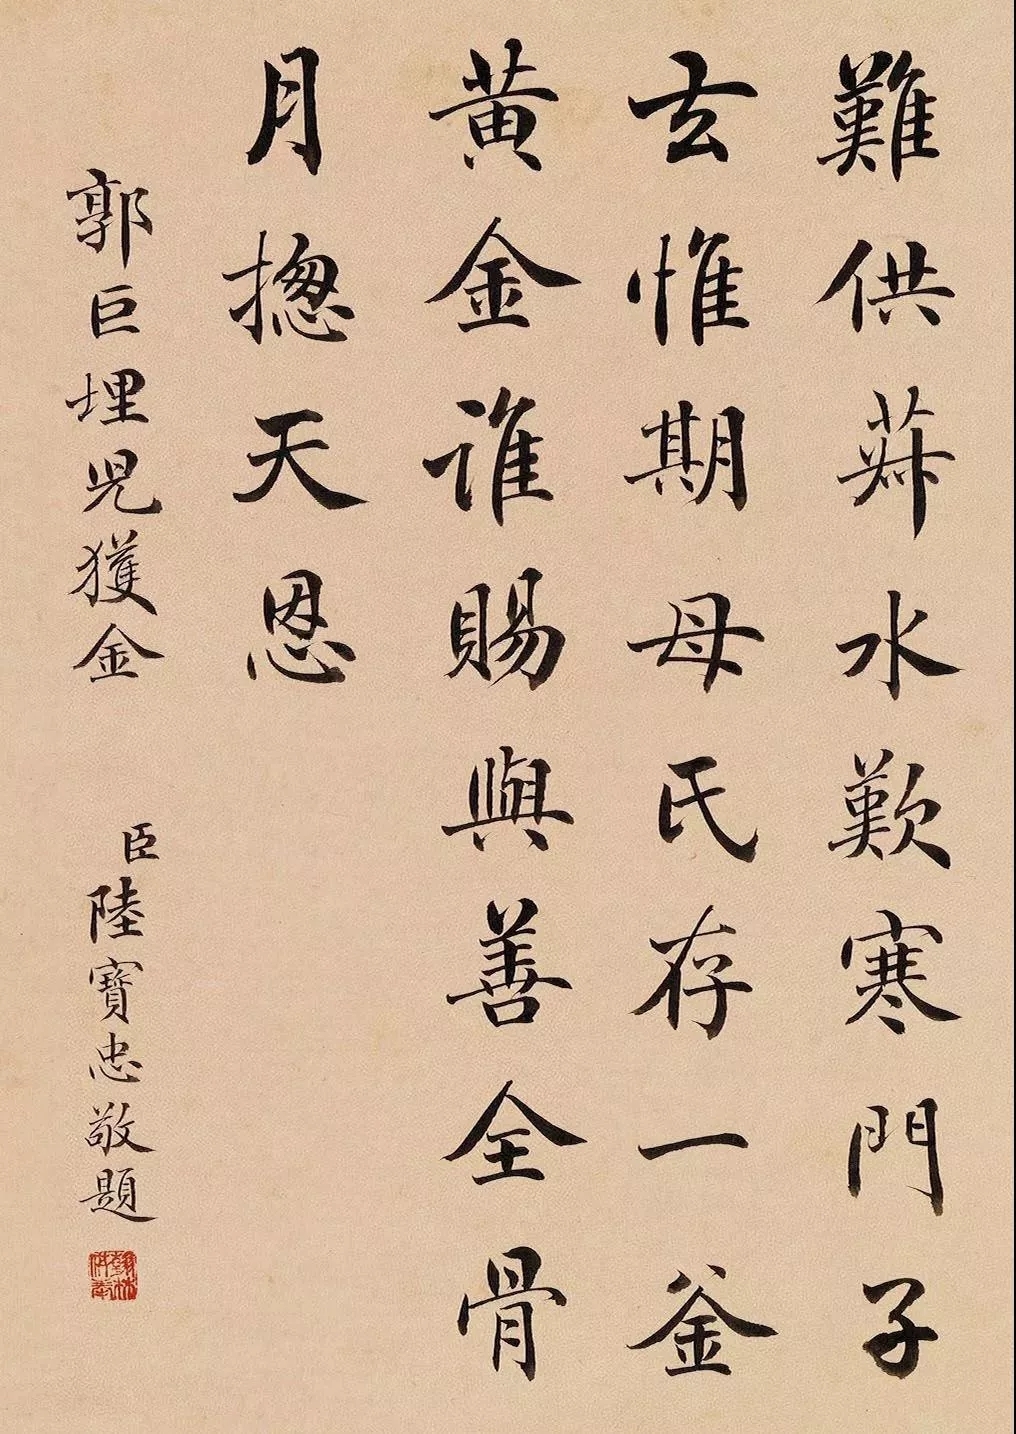 難供菽水歎寒門子
去惟期母氏存一釜
黃金誰賜與善全骨
月摠天恩
郭巨埋兒獲金
臣陸寶忠敬題
翰林供奉